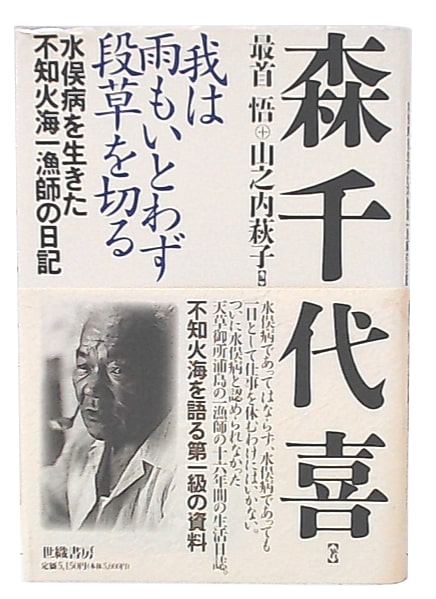 森千代喜【著】
最首 悟+山之内萩子【編】
我は
雨もいとわず
段草を切る
水俣病を生きた
不知火海一漁師の日記
水俣病であってはならず、水俣病であっても
一日として仕事を休むわけにはいかない。
ついに水俣病と認められなかった
天草御所浦島の一漁師の十六年間の生活日誌。
不知火海を語る第一級の資料
世織書房
定価5,150円(本体5,000円)